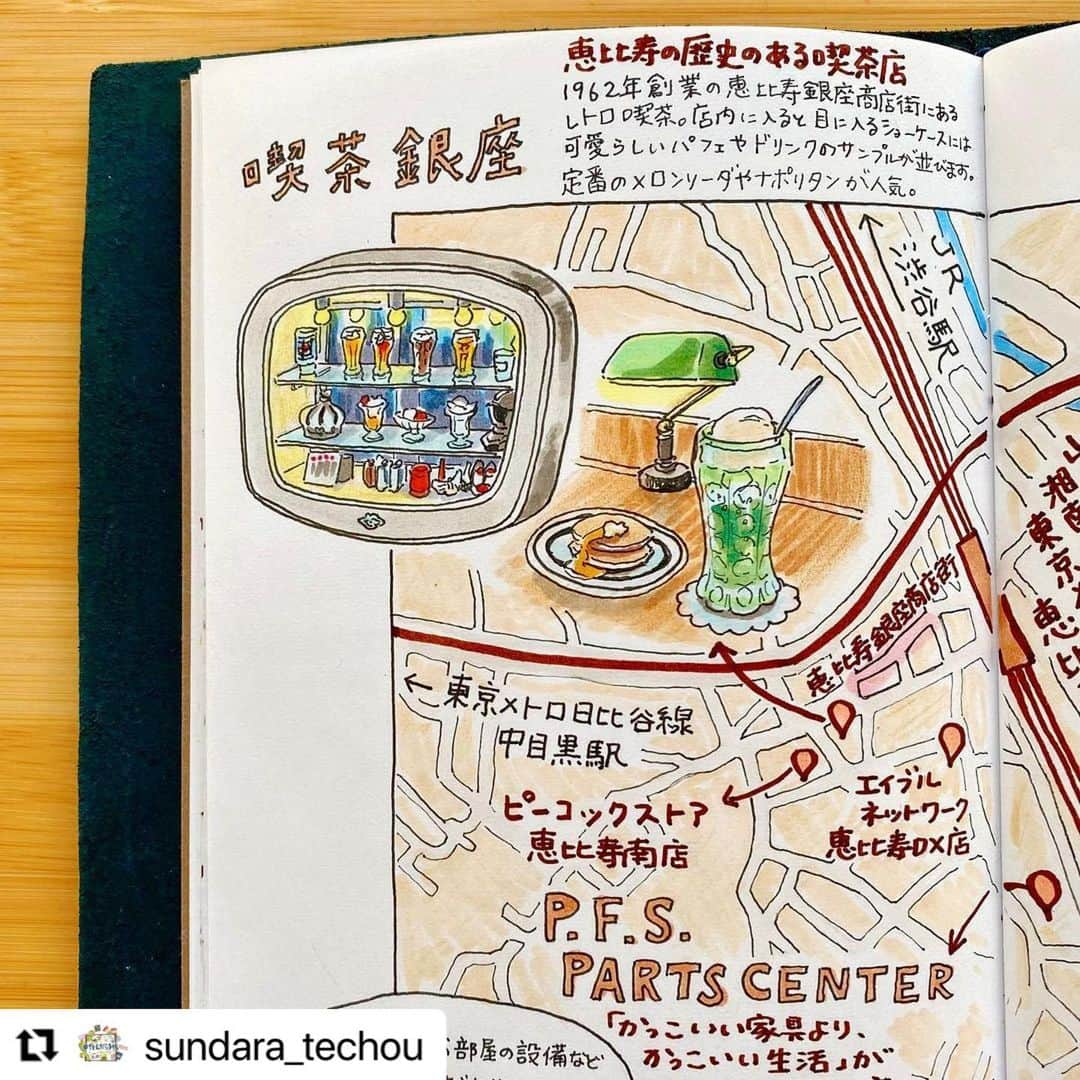 恵比寿の歴史のある喫茶店
1962年創業の恵比寿銀座商店街にある
レトロ喫茶。店内に入ると目に入るショーケースには
可愛らしいパフェやドリンクのサンプルが並びます。
定番のメロンソーダやナポリタンが人気。
喫茶銀座
JR
渋谷駅
湘南
東京
恵比
恵比寿銀座商店街
←東京メトロ日比谷線
中目黒駅
ピーコックストア
恵比寿南店
エイブル
ネットワーク
恵比寿DX店
P.F.S.
PARTS CENTER
「かっこいい家具より、
かっこいい生活」が
部屋の設備など
sundara_techou